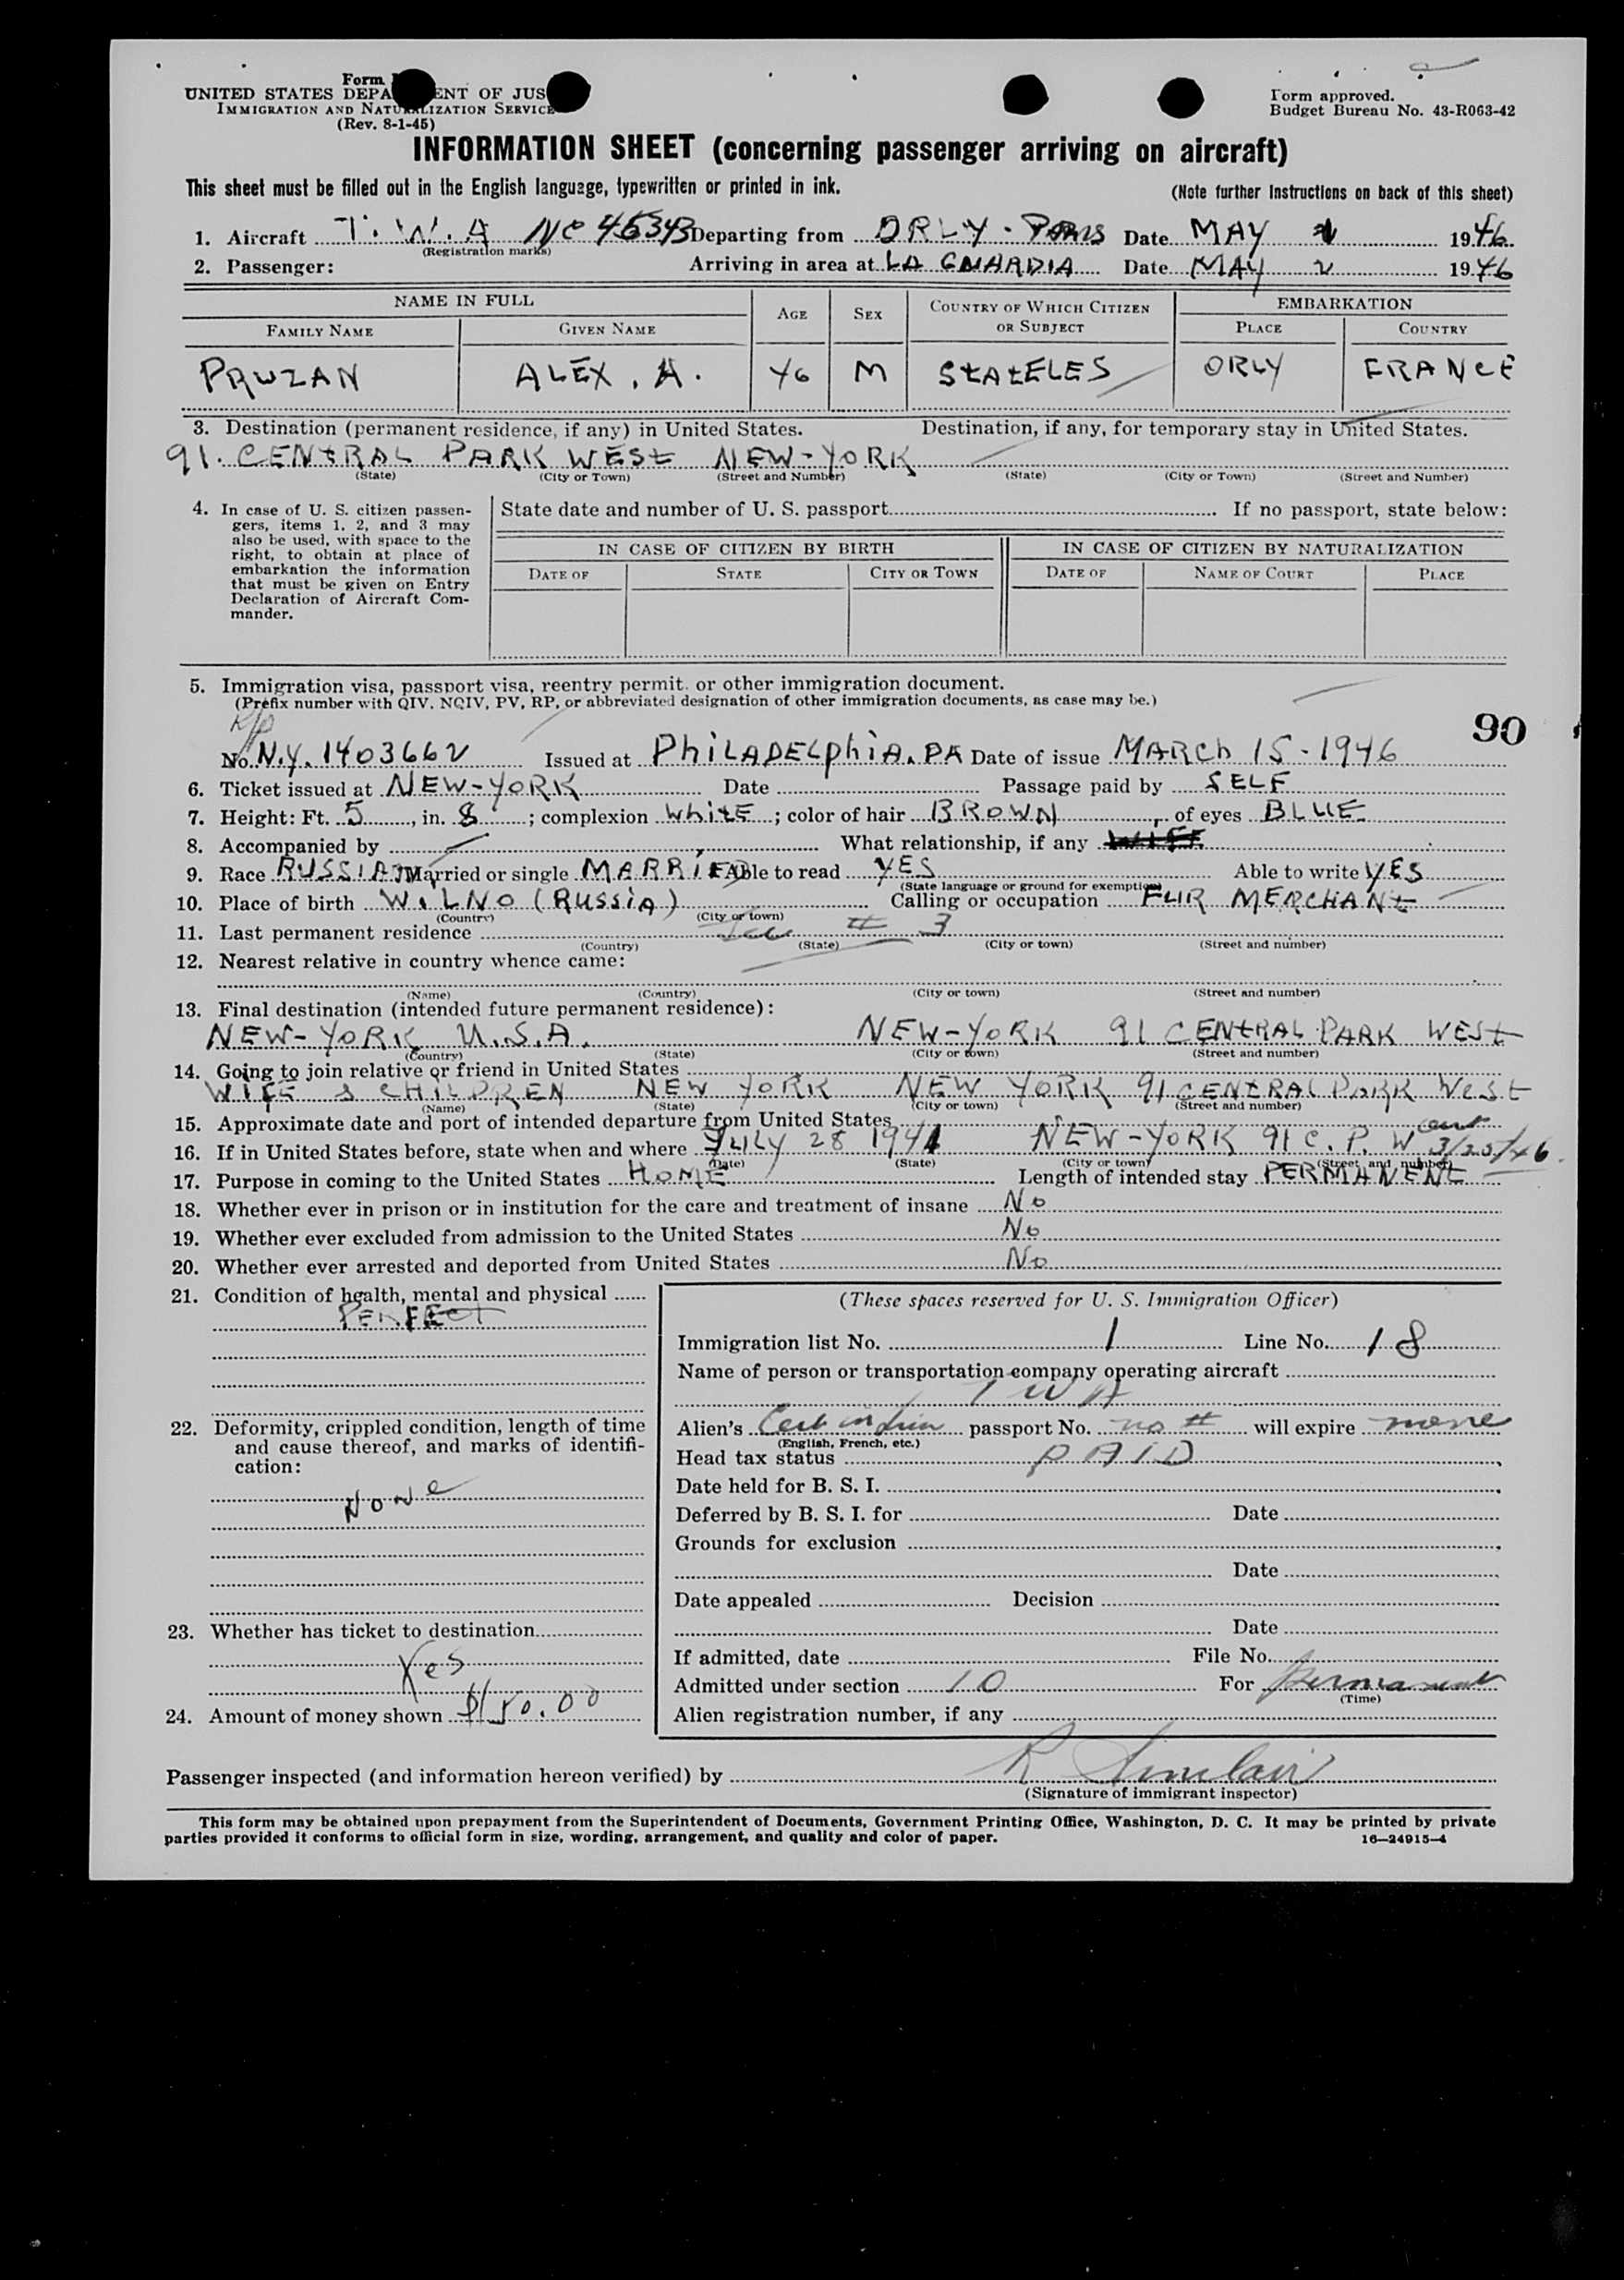 Form
UNITED STATES DEPA ENT OF JUS
IMMIGRATION AND NATURALIZATION SERVICE
(Rev. 8-1-45)
Form approved.
Budget Bureau No. 43-R063-42
INFORMATION SHEET (concerning passenger arriving on aircraft)
This sheet must be filled out in the English language, typewritten or printed in ink. (Note further instructions on back of this sheet)
1. Aircraft T.W.A NC 46343 Departing from ORLY - PARIS Date MAY 1946
(Registration marks)
2. Passenger: Arriving in area at LA GUARDIA Date MAY 2 1946
NAME IN FULL AGE SEX COUNTRY OF WHICH CITIZEN OR SUBJECT EMBARKATION
FAMILY NAME GIVEN NAME PLACE COUNTRY
PRUZAN ALEX. A. 46 M StAtELES ORLY FRANCE
3. Destination (permanent residence, if any) in United States. Destination, if any, for temporary stay in United States.
91. CENTRAL PARK WESt NEW-YORK
(State) (City or Town) (Street and Number) (State) (City or Town) (Street and Number)
4. In case of U. S. citizen passengers, items 1, 2, and 3 may also be used, with space to the right, to obtain at place of embarkation the information that must be given on Entry Declaration of Aircraft Commander.
State date and number of U. S. passport If no passport, state below:
IN CASE OF CITIZEN BY BIRTH IN CASE OF CITIZEN BY NATURALIZATION
DATE OF STATE CITY OR TOWN DATE OF NAME OF COURT PLACE
5. Immigration visa, passport visa, reentry permit, or other immigration document.
(Prefix number with QIV, NQIV, PV, RP, or abbreviated designation of other immigration documents, as case may be.)
90
R/P
No. N.Y. 1403662 Issued at PhiLADELphiA. PA Date of issue MARCh 15-1946
6. Ticket issued at NEW-YORK Date Passage paid by SELF
7. Height: Ft. 5, in. 8; complexion WhitE; color of hair BROWN, of eyes BLUE
8. Accompanied by What relationship, if any
9. Race RUSSIAN Married or single MARRiED Able to read YES Able to write YES
(State language or ground for exemption)
10. Place of birth WiLNO (RUSSiA) Calling or occupation FUR MERCHANt
(Country) (City or town)
11. Last permanent residence See # 3
(Country) (State) (City or town) (Street and number)
12. Nearest relative in country whence came:
(Name) (Country) (City or town) (Street and number)
13. Final destination (intended future permanent residence):
NEW-YORK U.S.A. NEW-YORK 91 CENtRAL PARK WESt
(Country) (State) (City or town) (Street and number)
14. Going to join relative or friend in United States
WIFE & CHILDREN NEW YORK NEW YORK 91 CENtRAL PARK WESt
(Name) (State) (City or town) (Street and number)
15. Approximate date and port of intended departure from United States
16. If in United States before, state when and where JULY 28 1941 NEW-YORK 91 C. P. W 3/25/46
(Date) (State) (City or town) (Street and number)
17. Purpose in coming to the United States HOME Length of intended stay PERMANENt
18. Whether ever in prison or in institution for the care and treatment of insane No
19. Whether ever excluded from admission to the United States No
20. Whether ever arrested and deported from United States No
21. Condition of health, mental and physical
PERFECT
22. Deformity, crippled condition, length of time and cause thereof, and marks of identification:
None
23. Whether has ticket to destination
Yes
24. Amount of money shown $150.00
(These spaces reserved for U. S. Immigration Officer)
Immigration list No. 1 Line No. 18
Name of person or transportation company operating aircraft
TWA
Alien's passport No. no # will expire none
(English, French, etc.)
Head tax status PAID
Date held for B. S. I.
Deferred by B. S. I. for Date
Grounds for exclusion
Date
Date appealed Decision
Date
If admitted, date File No.
Admitted under section 10 For permanent
(Time)
Alien registration number, if any
Passenger inspected (and information hereon verified) by R Sinclair
(Signature of immigrant inspector)
This form may be obtained upon prepayment from the Superintendent of Documents, Government Printing Office, Washington, D. C. It may be printed by private
parties provided it conforms to official form in size, wording, arrangement, and quality and color of paper. 16—24915-4